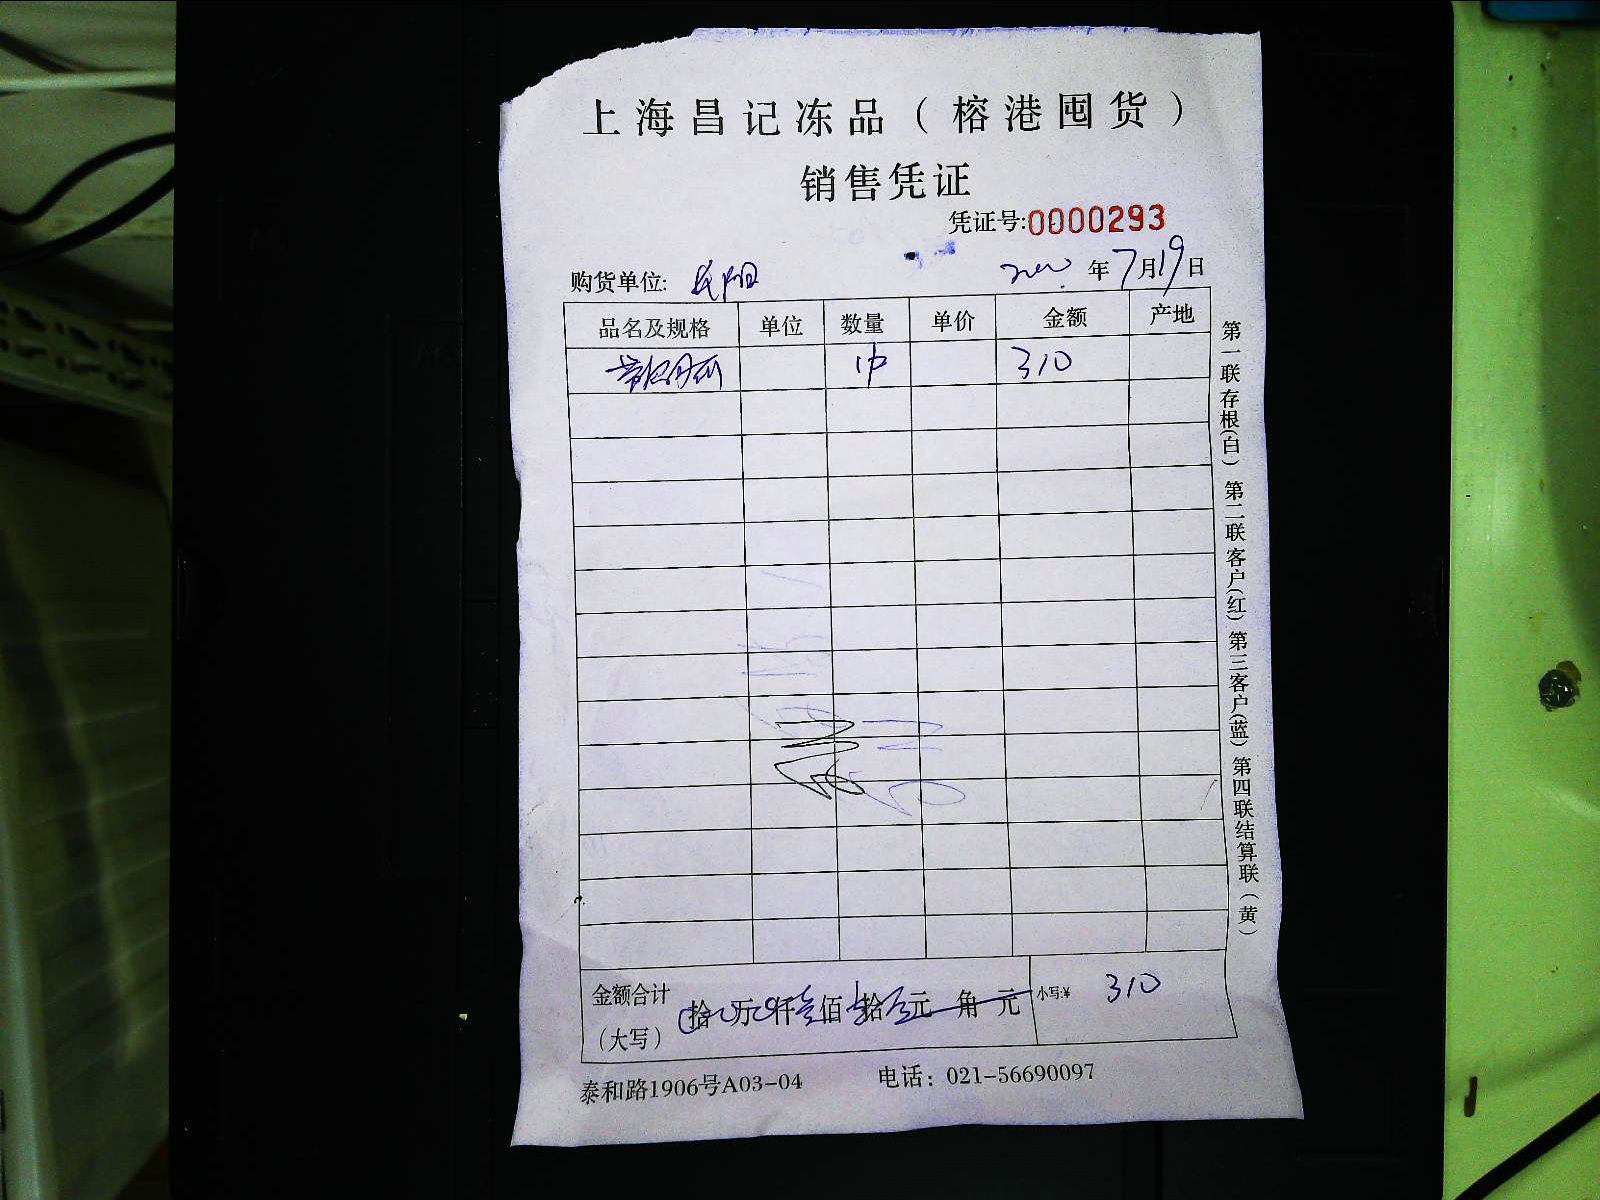 上海昌记冻品（榕港囤货）
销售凭证
凭证号:0000293
购货单位: 年7月19日
品名及规格 单位 数量 单价 金额 产地
310
金额合计（大写） 拾 万 仟 佰 拾 元 角 元 小写:¥ 310
泰和路1906号A03-04 电话：021-56690097
第一联存根(白) 第二联客户(红) 第三客户(蓝) 第四联结算联(黄)